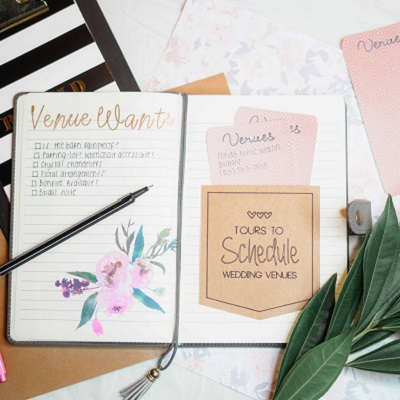 Venue Wants
Is the barn rainproof?
Parking-lots wheelchair accessible?
Crystal chandeliers
Floral arrangements
Bonfire available?
Bridal suite
Venues
TOURS TO
Schedule
WEDDING VENUES
Venues